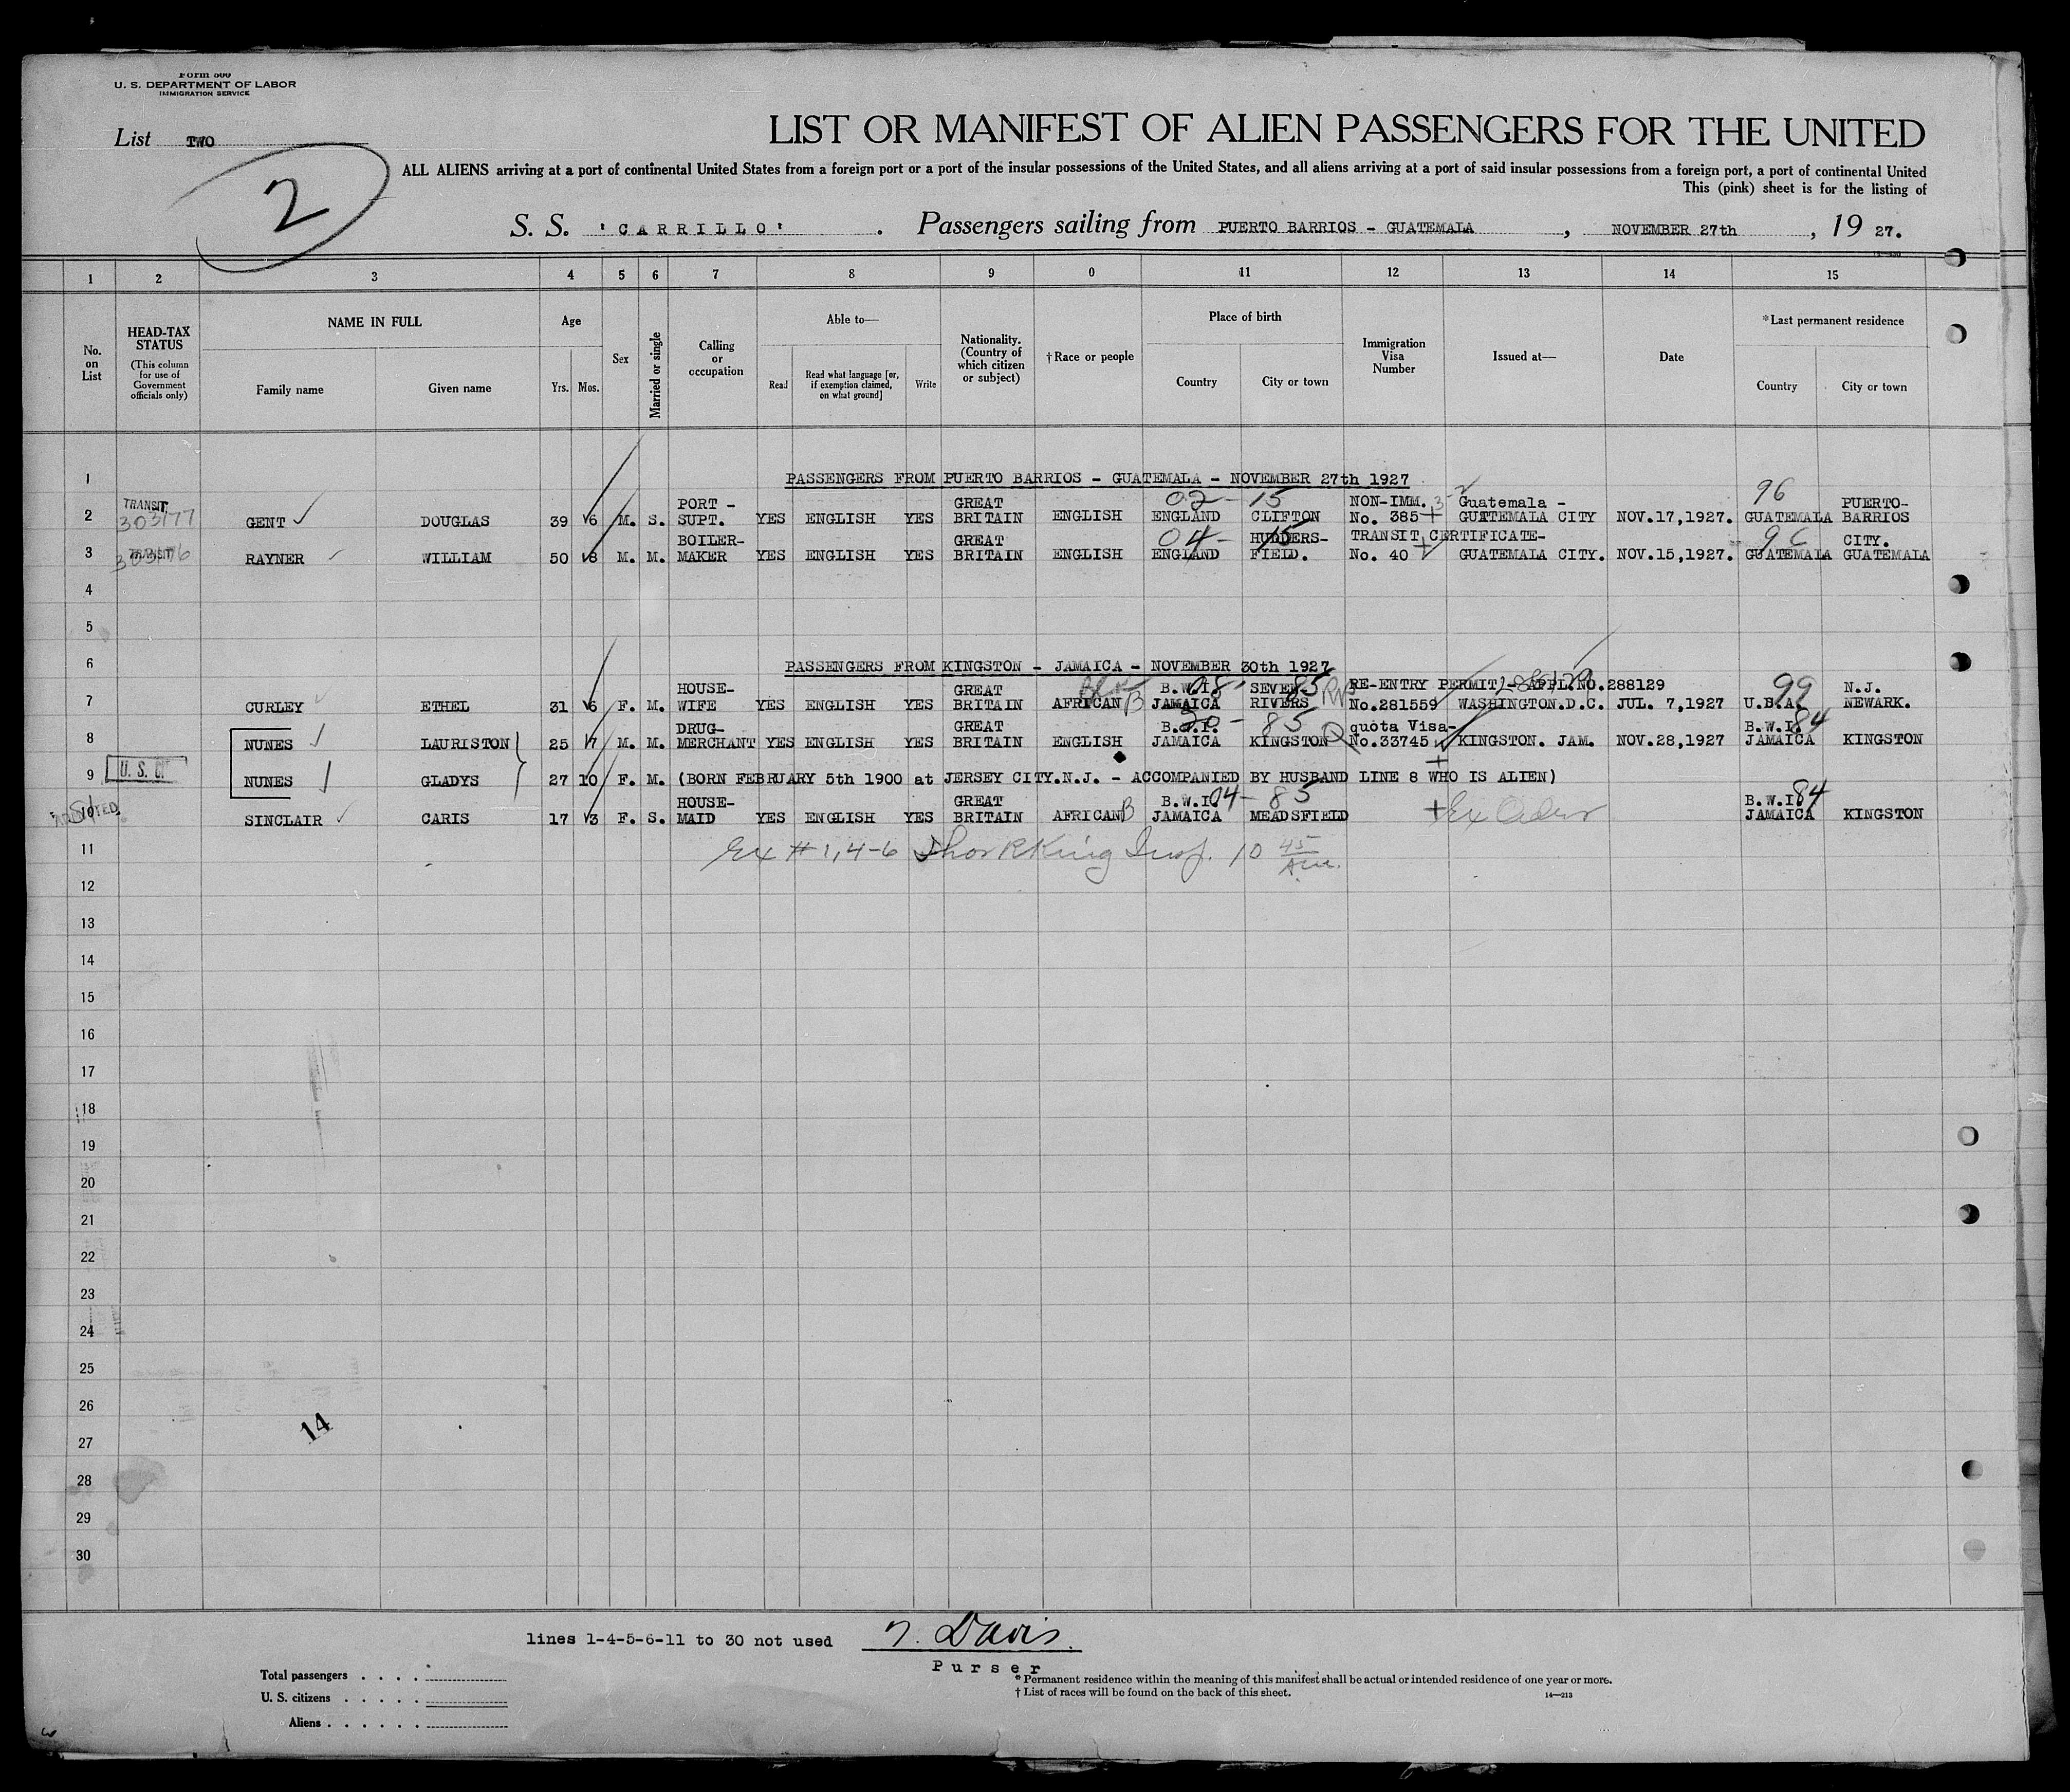 Form 500
U. S. DEPARTMENT OF LABOR
IMMIGRATION SERVICE
List TWO
2
LIST OR MANIFEST OF ALIEN PASSENGERS FOR THE UNITED
ALL ALIENS arriving at a port of continental United States from a foreign port or a port of the insular possessions of the United States, and all aliens arriving at a port of said insular possessions from a foreign port, a port of continental United
This (pink) sheet is for the listing of
S. S. 'CARRILLO' . Passengers sailing from PUERTO BARRIOS - GUATEMALA , NOVEMBER 27th , 19 27.
1 2 3 4 5 6 7 8 9 0 11 12 13 14 15
No. on List
HEAD-TAX STATUS
(This column for use of Government officials only)
NAME IN FULL
Family name Given name
Age
Yrs. Mos.
Sex
Married or single
Calling or occupation
Able to—
Read Read what language [or, if exemption claimed, on what ground] Write
Nationality. (Country of which citizen or subject)
†Race or people
Place of birth
Country City or town
Immigration Visa Number
Issued at—
Date
*Last permanent residence
Country City or town
1 PASSENGERS FROM PUERTO BARRIOS - GUATEMALA - NOVEMBER 27th 1927
TRANSIT PORT - GREAT 02 - 15 NON-IMM. 3-2 Guatemala - 96 PUERTO-
2 303177 GENT DOUGLAS 39 6 M. S. SUPT. YES ENGLISH YES BRITAIN ENGLISH ENGLAND CLIFTON No. 385 GUATEMALA CITY NOV.17,1927. GUATEMALA BARRIOS
TRANSIT BOILER- GREAT 04- 15 HUDDERS- TRANSIT CERTIFICATE- 96 CITY.
3 303176 RAYNER WILLIAM 50 8 M. M. MAKER YES ENGLISH YES BRITAIN ENGLISH ENGLAND FIELD. No. 40 GUATEMALA CITY. NOV.15,1927. GUATEMALA GUATEMALA
4
5
6 PASSENGERS FROM KINGSTON - JAMAICA - NOVEMBER 30th 1927
HOUSE- GREAT B.W.I. 08- SEVEN 85 RE-ENTRY PERMIT - APPL.NO.288129 99 N.J.
7 CURLEY ETHEL 31 6 F. M. WIFE YES ENGLISH YES BRITAIN AFRICAN B JAMAICA RIVERS No.281559 WASHINGTON.D.C. JUL. 7,1927 U.S.A. NEWARK.
DRUG- GREAT B.W.I. 20- 85 quota Visa- B.W.I. 84
8 NUNES LAURISTON 25 7 M. M. MERCHANT YES ENGLISH YES BRITAIN ENGLISH JAMAICA KINGSTON Q No.33745 KINGSTON. JAM. NOV.28,1927 JAMAICA KINGSTON
9 U. S. C. NUNES GLADYS 27 10 F. M. (BORN FEBRUARY 5th 1900 at JERSEY CITY.N.J. - ACCOMPANIED BY HUSBAND LINE 8 WHO IS ALIEN)
HOUSE- GREAT B.W.I. 04- 85 B.W.I. 84
10 SINCLAIR CARIS 17 3 F. S. MAID YES ENGLISH YES BRITAIN AFRICAN B JAMAICA MEADSFIELD JAMAICA KINGSTON
11 Ex # 1,4-6 King Insp. 10 45 Am.
12
13
14
15
16
17
18
19
20
21
22
23
24
25
26
14
27
28
29
30
lines 1-4-5-6-11 to 30 not used Davis.
Purser
Total passengers . . . .
U. S. citizens . . . . .
Aliens . . . . . .
* Permanent residence within the meaning of this manifest shall be actual or intended residence of one year or more.
† List of races will be found on the back of this sheet.
14—213